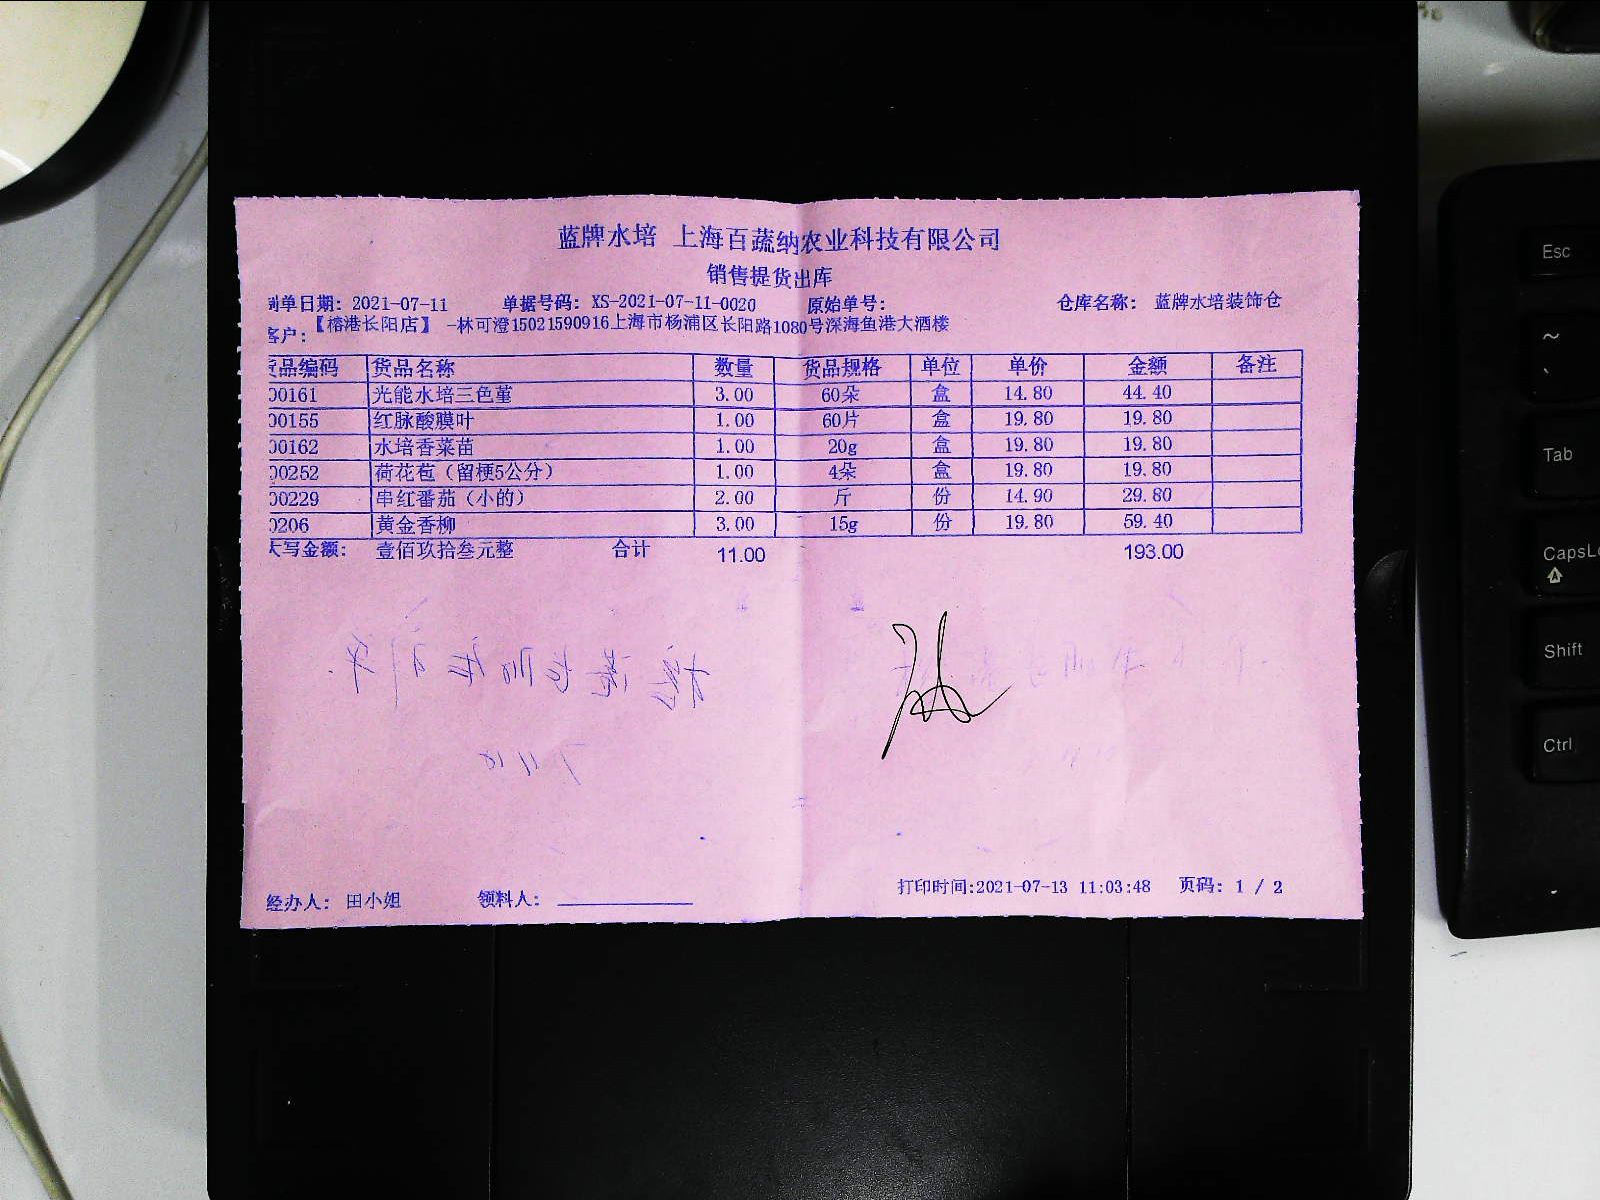 蓝牌水培 上海百蔬纳农业科技有限公司
销售提货出库
制单日期: 2021-07-11 单据号码: XS-2021-07-11-0020 原始单号: 仓库名称: 蓝牌水培装饰仓
客户: 【榕港长阳店】 -林可澄15021590916上海市杨浦区长阳路1080号深海鱼港大酒楼
货品编码 货品名称 数量 货品规格 单位 单价 金额 备注
00161 光能水培三色堇 3.00 60朵 盒 14.80 44.40
00155 红脉酸膜叶 1.00 60片 盒 19.80 19.80
00162 水培香菜苗 1.00 20g 盒 19.80 19.80
00252 荷花苞（留梗5公分） 1.00 4朵 盒 19.80 19.80
00229 串红番茄（小的） 2.00 斤 份 14.90 29.80
0206 黄金香柳 3.00 15g 份 19.80 59.40
大写金额: 壹佰玖拾叁元整 合计 11.00 193.00
经办人: 田小姐 领料人: 打印时间:2021-07-13 11:03:48 页码: 1 / 2
Esc
~
Tab
CapsLo
Shift
Ctrl